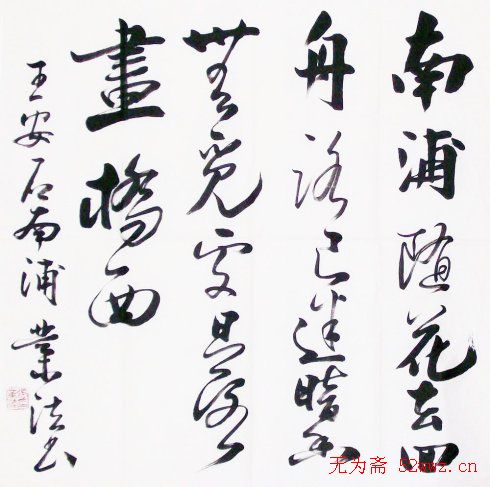 南浦隨花去回
舟路已迷暗香
無覓處日落
畫橋西
王安石南浦 業法书
无为斋 52wwz.cn